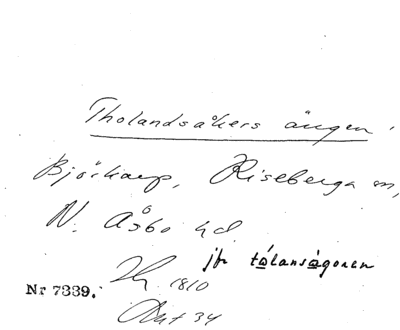 Tholandsåkers ängen
Björkarp, Riseberga sn,
N. Åsbo hd
jfr tålansågonen
1810
Nr 7339.
Akt 34